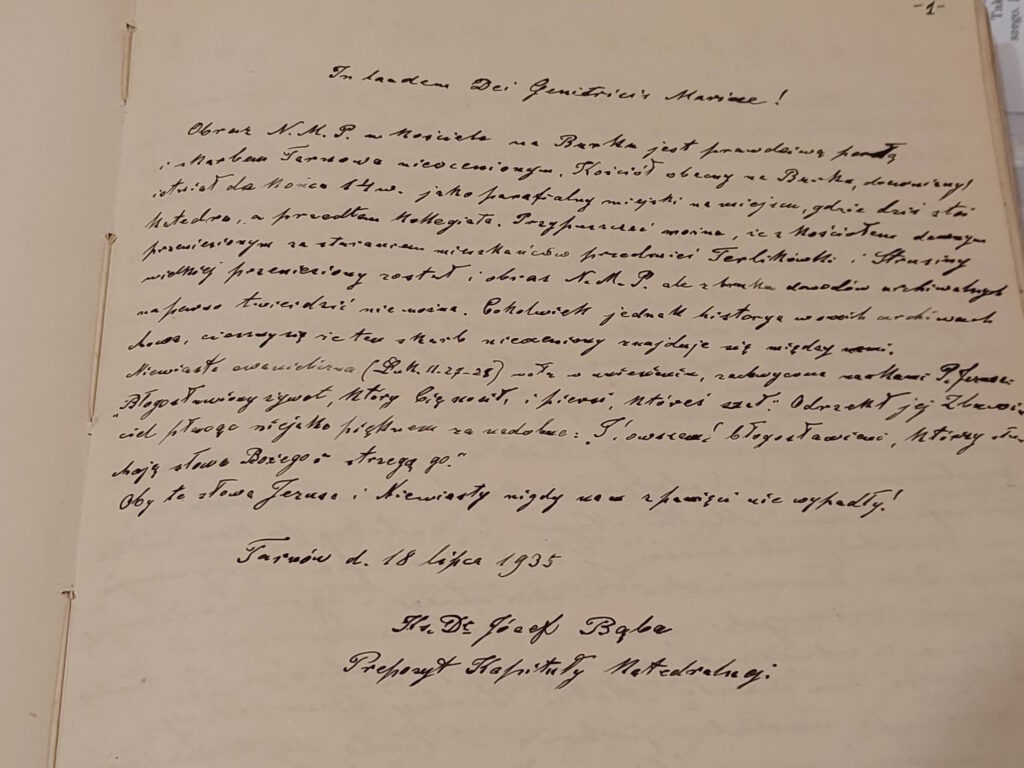 -1-
In laudem Dei Genitricis Mariae!
Obraz N. M. P. w kościele na Burku jest prawdziwą perłą
i skarbem Tarnowa nieocenionym. Kościół obecny na Burku, drewniany
istniał do końca 14 w. jako parafialny miejski na miejscu, gdzie dziś stoi
Katedra, a przedtem Kollegiata. Przypuszczać można, że z kościołem dawnym
przeniesionym za staraniem mieszkańców przedmieść Terlikówki i Strusiny
wielkiej przeniesiony został i obraz N. M. P. ale z braku dowodów archiwalnych
na pewno twierdzić nie można. Cokolwiek jednak historya w swoich archiwach
chowa, cieszmy się że ten skarb nieoceniony znajduje się między nami.
Niewiasta ewangeliczna (Łuk. 11. 27-28) woła w uniesieniu, zachwycona naukami P. Jezusa:
"Błogosławiony żywot, który Cię nosił, i piersi, któreś ssał." Odrzekł jej Zbawi-
ciel płacąc niejako pięknem za nadobne: "I owszem błogosławieni, którzy słu-
chają słowa Bożego i strzegą go."
Oby te słowa Jezusa i Niewiasty nigdy nam z pamięci nie wypadły!
Tarnów d. 18 lipca 1935
Ks. Dr. Józef Bąba
Prepozyt Kapituły Katedralnej.